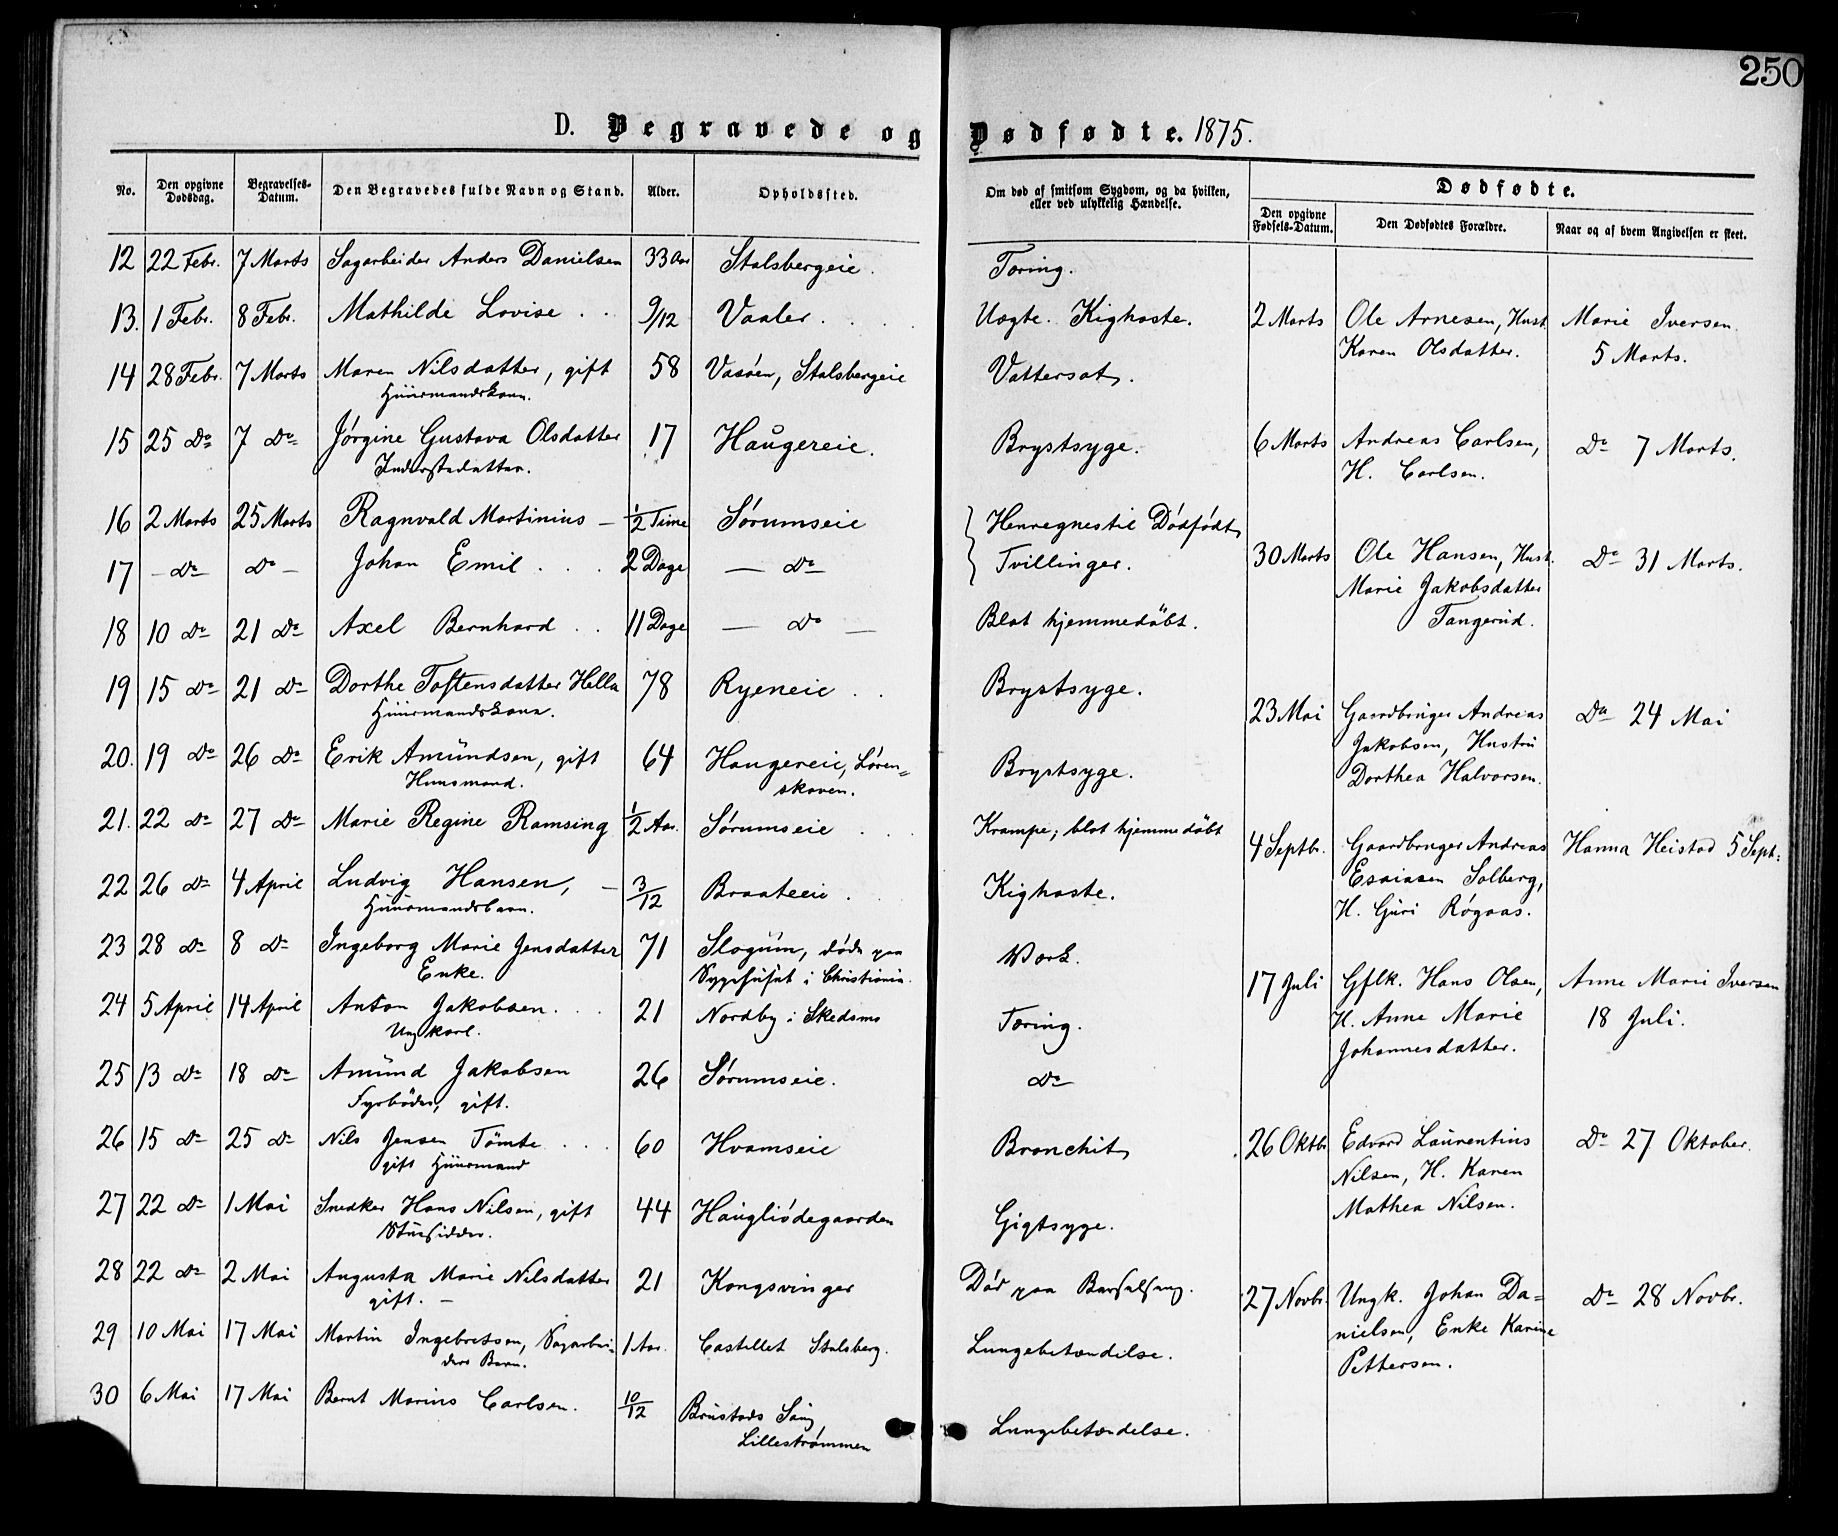 250
D. Begravede og Dødfødte. 1875.
No. | Den opgivne Dødsdag. | Begravelses-Datum. | Den Begravedes fulde Navn og Stand. | Alder. | Opholdssted. | Om død af smitsom Sygdom, og da hvilken, eller ved ulykkelig Hændelse.
12 | 22 Febr. | 7 Marts | Sagarbeider Anders Danielsen | 33 Aar | Stalsbergeie. | Tæring.
13. | 1 Febr. | 8 Febr. | Mathilde Lovise . . | 9/12 | Vaaler . . . . | Uægte. Kighoste.
14 | 28 Febr. | 7 Marts | Maren Nilsdatter, gift
Huusmandskone. | 58 | Vasøen, Stalsbergeie | Vattersot.
15 | 25 Do | 7 Do | Jørgine Gustava Olsdatter
Inderstedatter. | 17 | Haugereie. | Brystsyge.
16 | 2 Marts | 25 Marts | Ragnvald Martinius — | 1/2 Time | Sørumseie | Henregnes til Dødfødt
17 | — Do | Do — | Johan Emil . . . | 2 Dage | — Do | Tvillinger.
18 | 10 Do | 21 Do | Axel Bernhard . . | 11 Dage | — Do — | Blot hjemmedöbt.
19 | 15 Do | 21 Do | Dorthe Toftensdatter Hella
Huusmandskone. | 78 | Ryeneie . . | Brystsyge.
20. | 19 Do | 26 Do | Erik Amundsen, gift
Huusmand. | 64 | Haugereie, Løren-
skoven. | Brystsyge.
21. | 22 Do | 27 Do | Marie Regine Ramsing | 1/2 Aar. | Sørumseie . . . | Krampe; blot hjemmedöbt
22 | 26 Do | 4 April | Ludvig Hansen, —
Huusmandsbarn. | 3/12 | Braateeie . | Kighoste.
23 | 28 Do | 8 Do | Ingeborg Marie Jensdatter
Enke. | 71 | Slogum, døde paa
Sygehuset i Christiania. | Værk.
24 | 5 April | 14 April | Anton Jakobsen. . .
Ungkarl. | 21 | Nordby i Skedsmo | Tæring.
25 | 13 Do | 18 Do | Amund Jakobsen
Fyrbøder, gift. | 26 | Sørumseie. | Do
26 | 15 Do | 25 Do | Nils Jensen Tömte . . .
gift Huusmand | 60 | Hvamseie | Bronchit
27 | 22 Do | 1 Mai | Snedker Hans Nilsen, gift
Stuesidder. | 44 | Haugliødegaarden | Gigtsyge.
28 | 22 Do | 2 Mai | Augusta Marie Nilsdatter
gift. — | 21 | Kongsvinger | Død paa Barselseng.
29 | 10 Mai | 17 Mai | Martin Ingebretsen, Sagarbei-
ders Barn. | 1 Aar. | Castellet Stalsberg. | Lungebetændelse.
30 | 6 Mai | 17 Mai | Bernt Marius Carlsen. | 10/12 | Brustads Saug,
Lillestrømmen | Lungebetændelse.
Dødfødte.
Den opgivne Fødsels-Datum. | Den Dødfødtes Forældre. | Naar og af hvem Angivelsen er skeet.
2 Marts | Ole Arnesen, Hust.
Karen Olsdatter. | Marie Iversen
5 Marts.
6 Marts | Andreas Carlsen,
H. Carlsen. | Do 7 Marts.
30 Marts | Ole Hansen, Hust.
Marie Jakobsdatter
Tangerud. | Do 31 Marts.
23 Mai | Gaardbruger Andreas
Jakobsen, Hustru
Dorthea Halvorsen. | Do 24 Mai
4 Septbr. | Gaardbruger Andreas
Esaiasen Solberg,
H. Guri Røgaas. | Hanna Heistad 5 Sept:
17 Juli | Gflk. Hans Olsen,
H. Anne Marie
Johannesdatter. | Anne Marie Iversen
18 Juli.
26 Oktbr | Edvard Laurentius
Nilsen, H. Karen
Mathea Nilsen. | Do 27 Oktober.
27 Novbr. | Ungk. Johan Da-
nielsen, Enke Karine
Pettersen. | Do 28 Novbr.